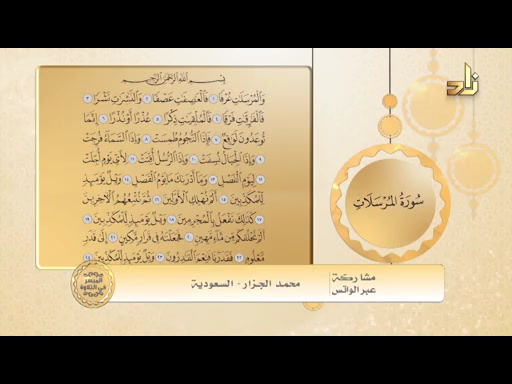 زاد
بِسْمِ اللَّهِ الرَّحْمَٰنِ الرَّحِيمِ
وَالْمُرْسَلَاتِ عُرْفًا ١ فَالْعَاصِفَاتِ عَصْفًا ٢ وَالنَّاشِرَاتِ نَشْرًا ٣
فَالْفَارِقَاتِ فَرْقًا ٤ فَالْمُلْقِيَاتِ ذِكْرًا ٥ عُذْرًا أَوْ نُذْرًا ٦ إِنَّمَا
تُوعَدُونَ لَوَاقِعٌ ٧ فَإِذَا النُّجُومُ طُمِسَتْ ٨ وَإِذَا السَّمَاءُ فُرِجَتْ
٩ وَإِذَا الْجِبَالُ نُسِفَتْ ١٠ وَإِذَا الرُّسُلُ أُقِّتَتْ ١١ لِأَيِّ يَوْمٍ أُجِّلَتْ
١٢ لِيَوْمِ الْفَصْلِ ١٣ وَمَا أَدْرَاكَ مَا يَوْمُ الْفَصْلِ ١٤ وَيْلٌ يَوْمَئِذٍ
لِلْمُكَذِّبِينَ ١٥ أَلَمْ نُهْلِكِ الْأَوَّلِينَ ١٦ ثُمَّ نُتْبِعُهُمُ الْآخِرِينَ
١٧ كَذَٰلِكَ نَفْعَلُ بِالْمُجْرِمِينَ ١٨ وَيْلٌ يَوْمَئِذٍ لِلْمُكَذِّبِينَ ١٩
أَلَمْ نَخْلُقْكُمْ مِنْ مَاءٍ مَهِينٍ ٢٠ فَجَعَلْنَاهُ فِي قَرَارٍ مَكِينٍ ٢١ إِلَىٰ قَدَرٍ
مَعْلُومٍ ٢٢ فَقَدَرْنَا فَنِعْمَ الْقَادِرُونَ ٢٣ وَيْلٌ يَوْمَئِذٍ لِلْمُكَذِّبِينَ ٢٤
سُورَةُ الْمُرْسَلَاتِ
مشاركة
عبر الواتس
محمد الجزار - السعودية
الميسر
في التلاوة